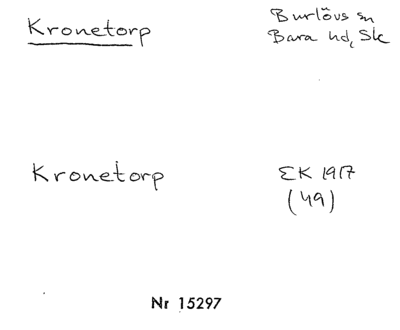 Kronetorp
Burlövs sn
Bara hd, Sk
Kronetorp
EK 1917
(49)
Nr 15297